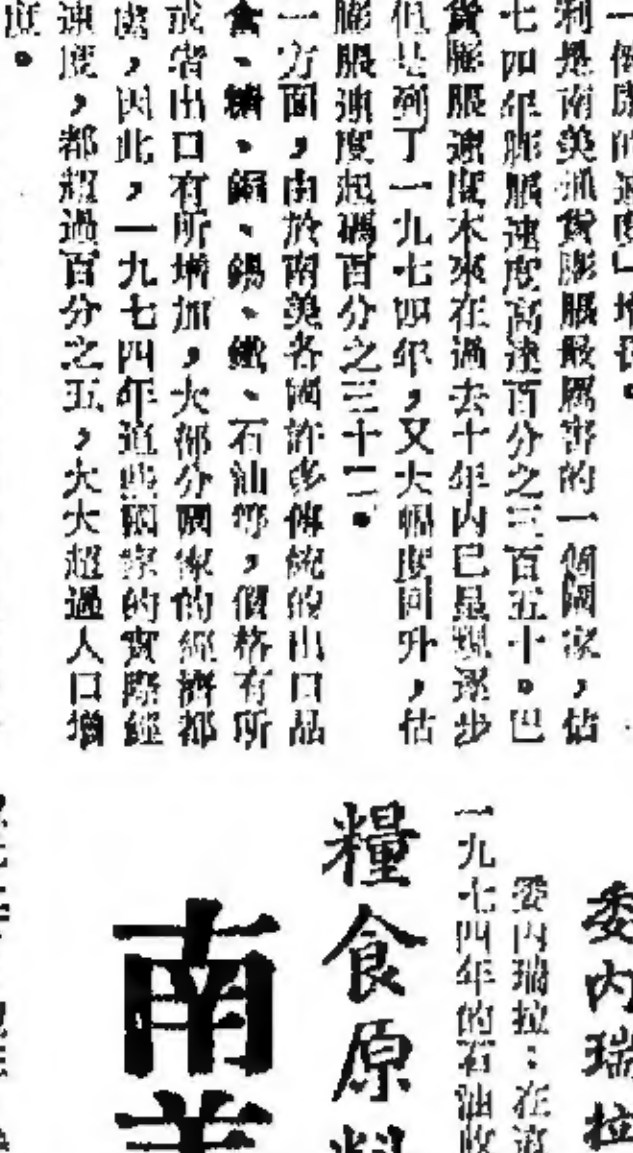 利是南美通貨膨脹最厲害的一個國家，估
七四年膨脹速度高達百分之三百五十。巴
貨膨脹速度本來在過去十年內已呈現逐步
但是到了一九七四年，又大幅度回升，估
膨脹速度起碼百分之三十二。
一方面，由於南美各國許多傳統的出口品
食、糖、銅、錫、鐵、石油等，價格有所
或者出口有所增加，大部分國家的經濟都
，因此，一九七四年這些國家的實際經
速度，都超過百分之五，大大超過人口增
度。
委內瑞拉
委內瑞拉：在這
一九七四年的石油收
糧食原料
南美